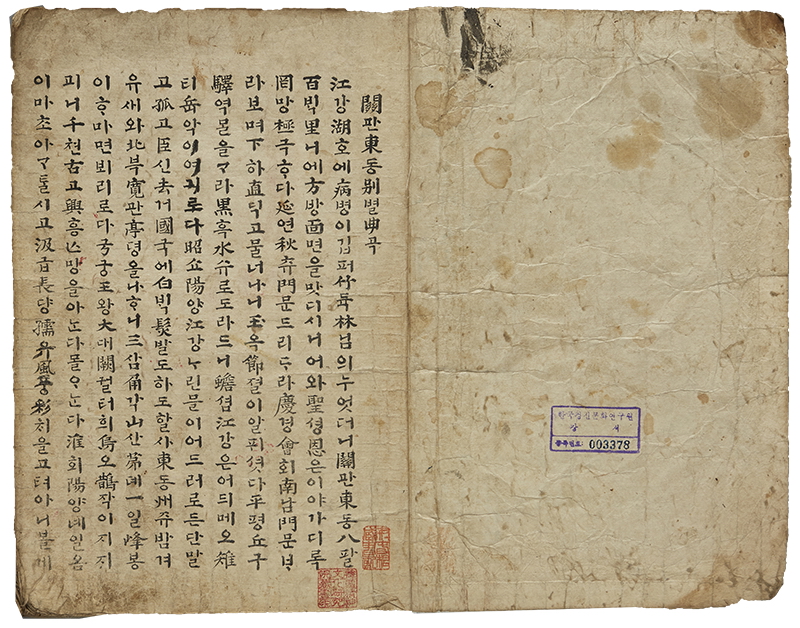 關판東동別별曲곡
江강湖호에病병이깁퍼竹듁林님의누엇더니關판東동八팔
百빅里니에方방面면을맛디시니어와聖셩恩은이야가디록
罔망極극ᄒᆞ다延연秋츄門문드리ᄃᆞ라慶경會회南남門문ᄇᆞ
라보며下하直딕고물너나니玉옥節졀이알픠셧다平평丘구
驛역ᄆᆞᆯ을ᄀᆞ라黑흑水슈로도라드니蟾셤江강은어듸메오雉
티岳악이여긔로다昭쇼陽양江강ᄂᆞ린믈이어드러로든단말
고孤고臣신去거國국에白빅髮발도하도할샤東동州쥬밤겨
유새와北북寬관亭뎡올나ᄒᆞ니三삼角각山산第뎨一일峰봉
이ᄒᆞ마면뵈리로다弓궁王왕大대闕궐터희烏오鵲쟉이지지
괴니千쳔古고興흥亡망을아ᄂᆞᆫ다몰ᄋᆞᄂᆞᆫ다淮회陽양녜일홈
이마초아ᄀᆞᄐᆞᆯ시고汲급長댱孺유風풍彩ᄎᆡ을고텨아니볼게
한국정신문화연구원
장 서
등록번호: 003378